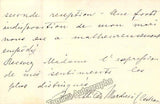 seconde réception. Une forte
indisposition de mon mari
nous en a malheureusement
empêché
Recevez Madame l'expression
de mes sentiments les
plus distingués